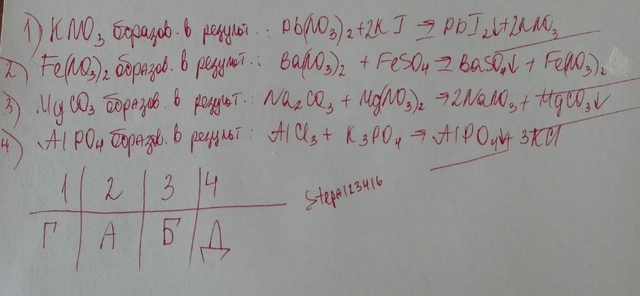 1) KNO₃ образов. в результ.: Pb(NO₃)₂+2KI → PbI₂↓+2KNO₃
2) Fe(NO₃)₂ образов. в результ.: Ba(NO₃)₂ + FeSO₄ → BaSO₄↓ + Fe(NO₃)₂
3) MgCO₃ образов. в результ.: Na₂CO₃ + Mg(NO₃)₂ → 2NaNO₃ + MgCO₃↓
4) AlPO₄ образов. в результ.: AlCl₃ + K₃PO₄ → AlPO₄↓+ 3KCl
1 2 3 4
Г А Б Д
Stepa123416